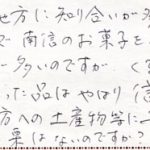 地方に知り合いが多
で 南信のお菓子を
多いのですが
った品は やはり 信
方への土産物等に
菓はないのですか?